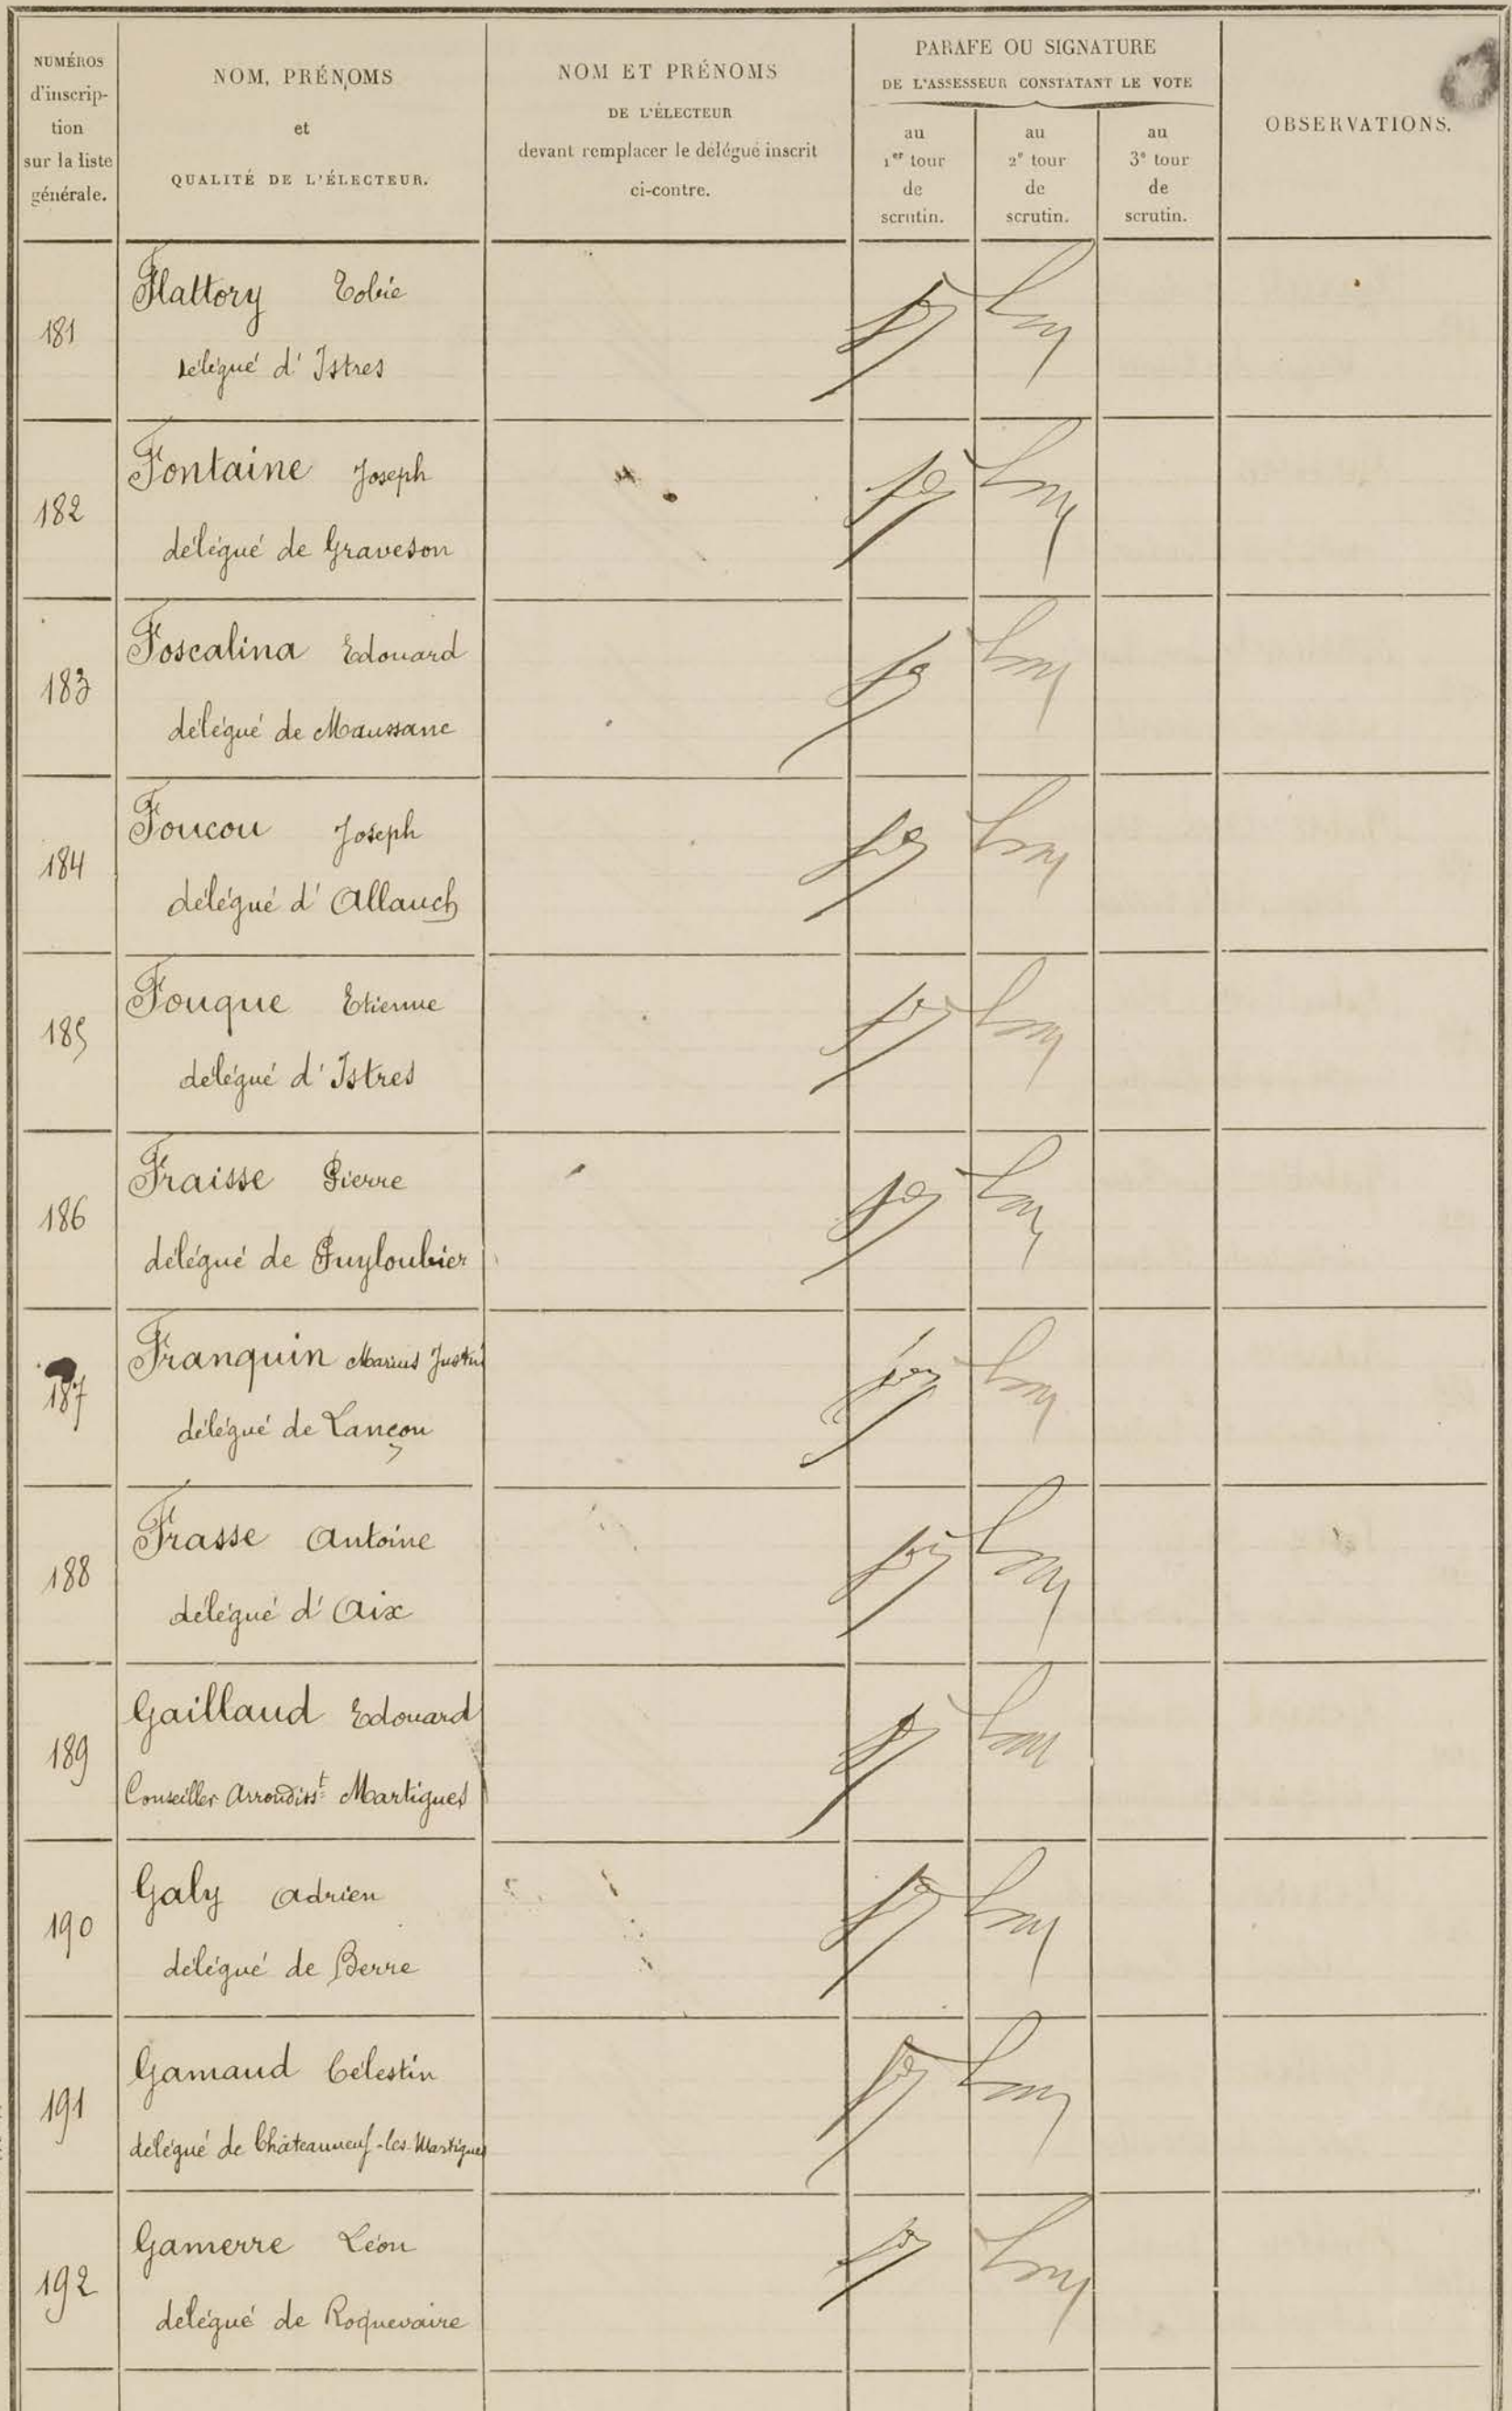 NUMÉROS
d'inscrip-
tion
sur la liste
générale.
NOM, PRÉNOMS
et
QUALITÉ DE L'ÉLECTEUR.
NOM ET PRÉNOMS
DE L'ÉLECTEUR
devant remplacer le délégué inscrit
ci-contre.
PARAFE OU SIGNATURE
DE L'ASSESSEUR CONSTATANT LE VOTE
au
1er tour
de
scrutin.
au
2e tour
de
scrutin.
au
3e tour
de
scrutin.
OBSERVATIONS.
181
Flattory Tobie
délégué d'Istres
182
Fontaine Joseph
délégué de Graveson
183
Foscalina Edouard
délégué de Maussane
184
Foucou Joseph
délégué d'Allauch
185
Fouque Etienne
délégué d'Istres
186
Fraisse Pierre
délégué de Puyloubier
187
Franquin Marius Justin
délégué de Lançon
188
Frasse Antoine
délégué d'Aix
189
Gaillaud Edouard
Conseiller Arrondisst Martigues
190
Galy Adrien
délégué de Berre
191
Gamaud Célestin
délégué de Châteauneuf-les-Martigues
192
Gamerre Léon
délégué de Roquevaire